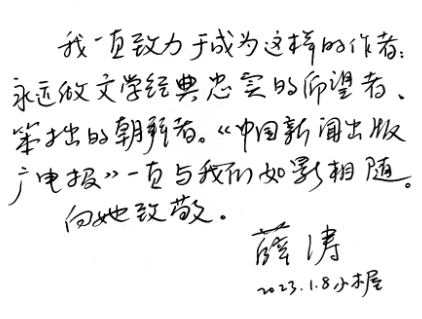 我一直致力于成为这样的作者:
永远做文学经典忠实的仰望者、
笨拙的朝拜者。《中国新闻出版
广电报》一直与我们如影相随。
向她致敬。
薛涛
2023.1.8小木屋